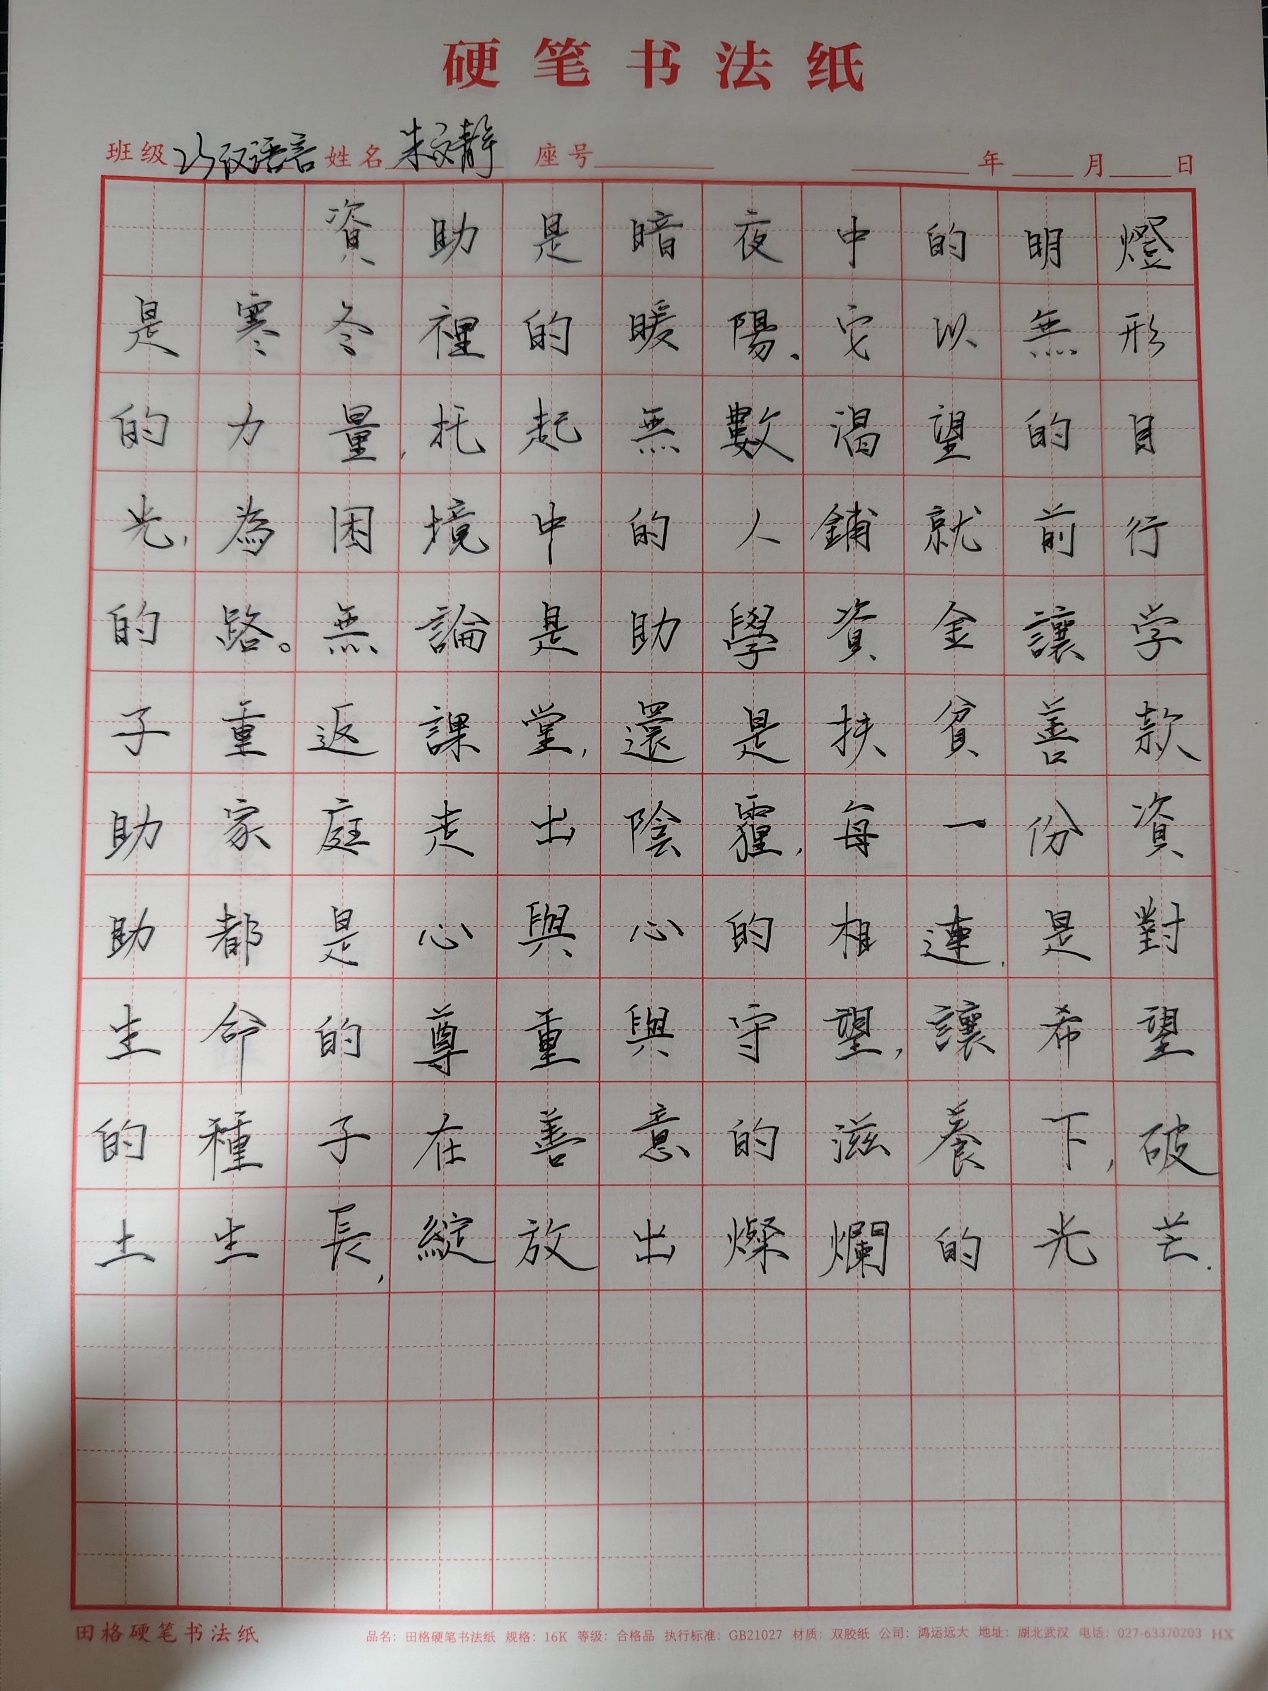 硬笔书法纸
班级 23汉语言 姓名 朱文静 座号 年 月 日
資助是暗夜中的明燈
是寒冬裡的暖陽、它以無形
的力量,托起無數渴望的目
光,為困境中的人鋪就前行
的路。無論是助學資金讓学
子重返課堂,還是扶貧善款
助家庭走出陰霾,每一份資
助都是心與心的相連,是對
生命的尊重與守望,讓希望
的種子在善意的滋養下,破
土生長,綻放出燦爛的光芒.
田格硬笔书法纸 品名：田格硬笔书法纸 规格：16K 等级：合格品 执行标准：GB21027 材质：双胶纸 公司：鸿运远大 地址：湖北武汉 电话：027-63370203 HX